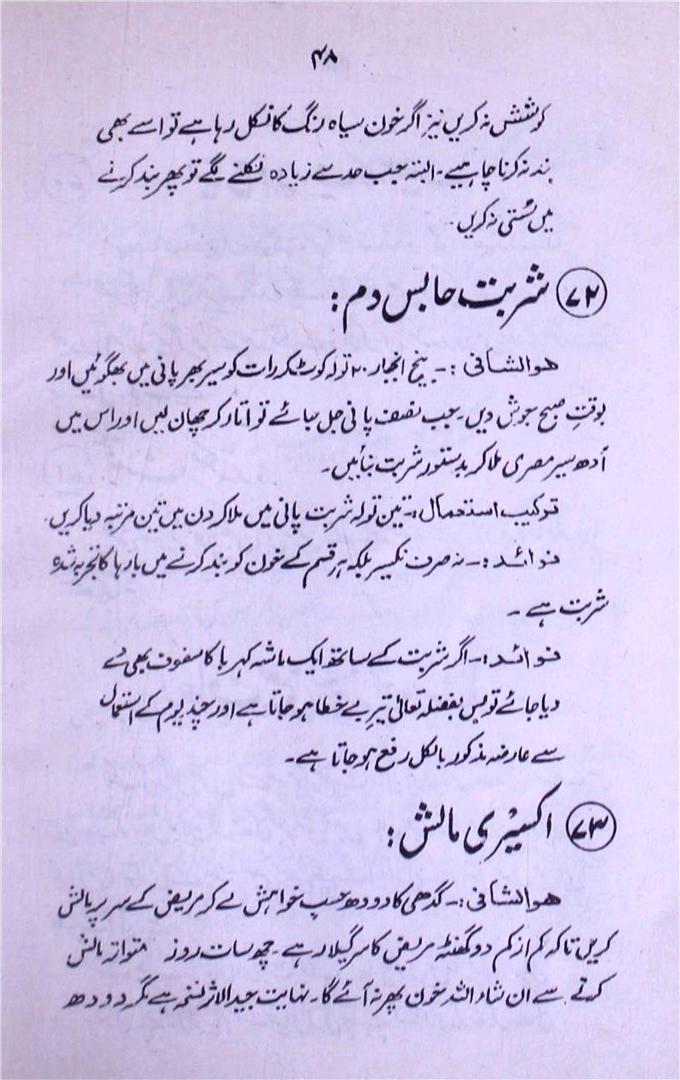 ۴۸
کوشش نہ کریں نیز اگر خون سیاہ رنگ کا نکل رہا ہے تو اسے بھی
بند نہ کرنا چاہیے۔ البتہ جب حد سے زیادہ نکلنے لگے تو پھر بند کرنے
میں سُستی نہ کریں۔
۷۲ شربت حابس دم:
ھوالشافی:۔ بیخ انجبار ۲۰ تولہ کوٹ کر رات کو سیر بھر پانی میں بھگوئیں اور
بوقتِ صبح جوش دیں۔ جب نصف پانی جل جائے تو اتار کر چھان لیں اور اس میں
آدھ سیر مصری ملا کر بدستور شربت بنائیں۔
ترکیب استعمال:۔ تین تولہ شربت پانی میں ملا کر دن میں تین مرتبہ دیا کریں۔
فوائد:۔ نہ صرف نکسیر بلکہ ہر قسم کے خون کو بند کرنے میں بارہا کا تجربہ شدہ
شربت ہے۔
فوائد:۔ اگر شربت کے ساتھ ایک ماشہ کہربا کا سفوف بھی دے
دیا جائے تو بس بفضلہ تعالیٰ تیرِ بے خطا ہو جاتا ہے اور چند یوم کے استعمال
سے عارضہ مذکور بالکل رفع ہو جاتا ہے۔
۷۳ اکسیری مالش:
ھوالشافی:۔ گدھی کا دودھ حسبِ خواہش لے کر مریض کے سر پر مالش
کریں تاکہ کم از کم دو گھنٹہ مریض کا سر گیلا رہے۔ چھ سات روز متواتر مالش
کرنے سے ان شاء اللہ خون پھر نہ آئے گا۔ نہایت جید الاثر نسخہ ہے مگر دودھ